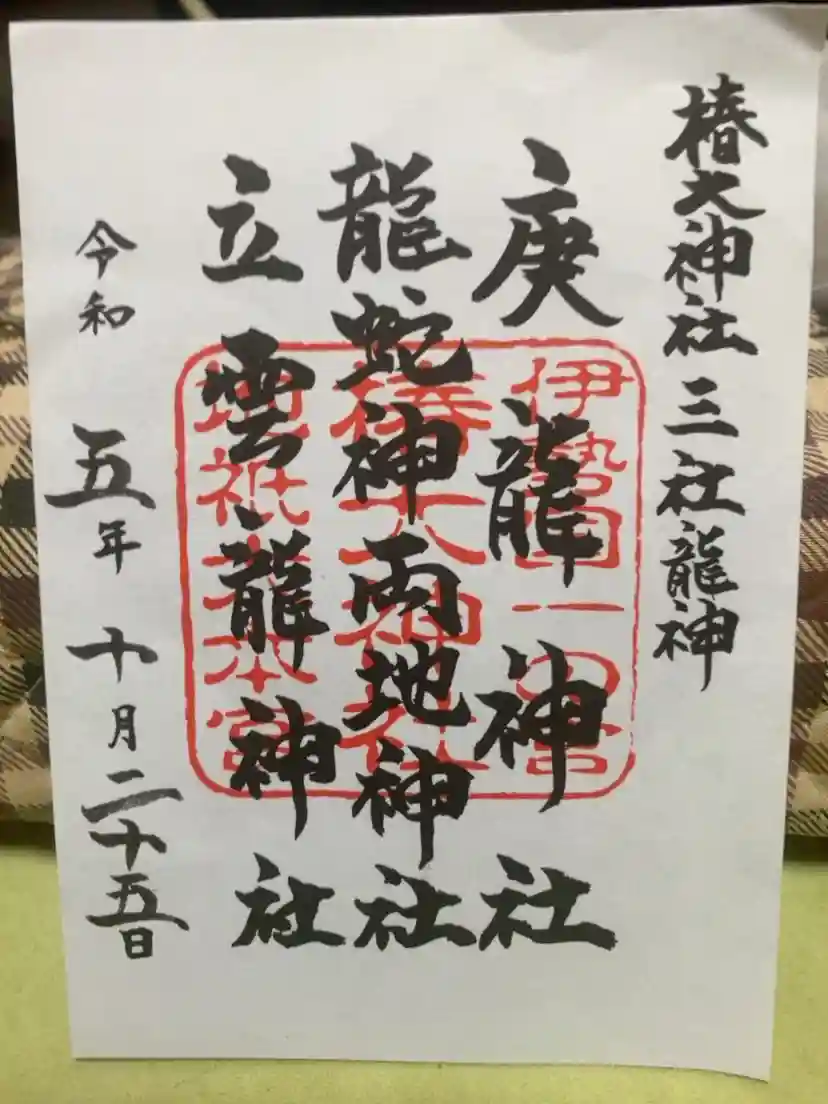 椿大神社 三社龍神
庚龍神社
龍蛇神両地神社
立雲龍神社
令和五年十月二十五日
伊勢国一の宮
椿大神社
地祇大本宮